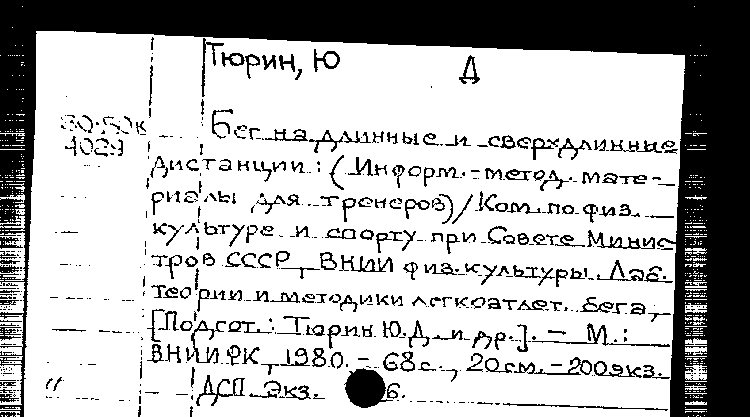 Тюрин, Ю Д
Бег на длинные и сверхдлинные
дистанции: (Информ.-метод. мате-
риалы для тренеров)/Ком. по физ.
культуре и спорту при Совете Минис-
тров СССР, ВНИИ физ. культуры. Лаб.
теории и методики легкоатлет. бега;
[Подгот.: Тюрин Ю.Д. и др.]. — М.:
ВНИИФК, 1980. - 68 с., 20 см. - 200 экз.
ДСП. Экз. 6.